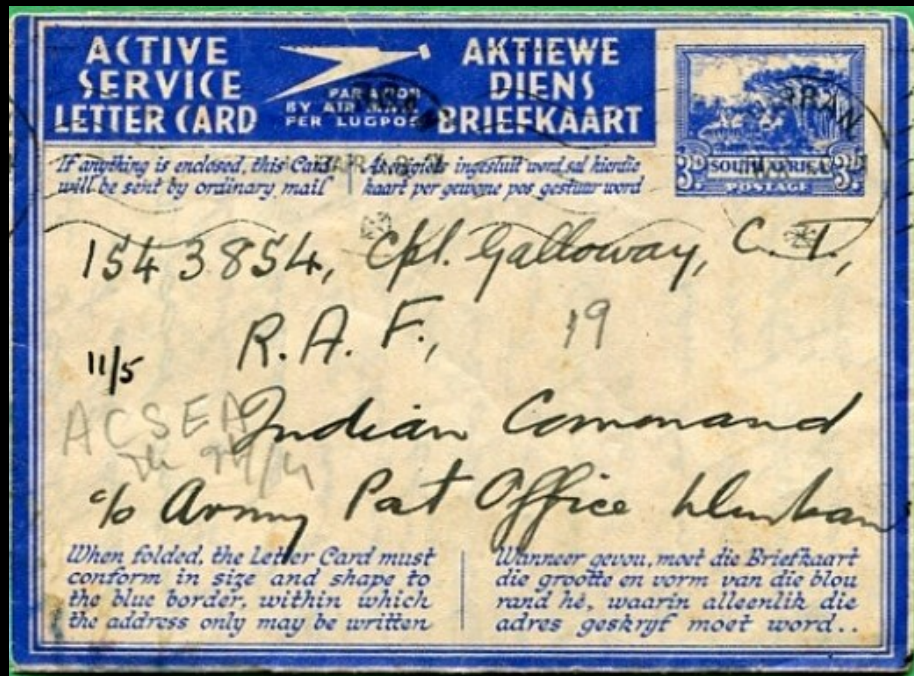 ACTIVE
SERVICE
LETTER CARD
PAR AVION
BY AIR MAIL
PER LUGPOS
AKTIEWE
DIENS
BRIEFKAART
3D SOUTH AFRICA 3D
POSTAGE
If anything is enclosed, this Card
will be sent by ordinary mail
As enigiets ingesluit word sal hierdie
kaart per gewone pos gestuur word
1543854, Cpl. Galloway, C. T.,
R. A. F., 19
11/5
ACSEA
Indian Command
c/o Army Post Office Durban
When folded, the Letter Card must
conform in size and shape to
the blue border, within which
the address only may be written
Wanneer gevou, moet die Briefkaart
die grootte en vorm van die blou
rand hê, waarin alleenlik die
adres geskryf moet word..